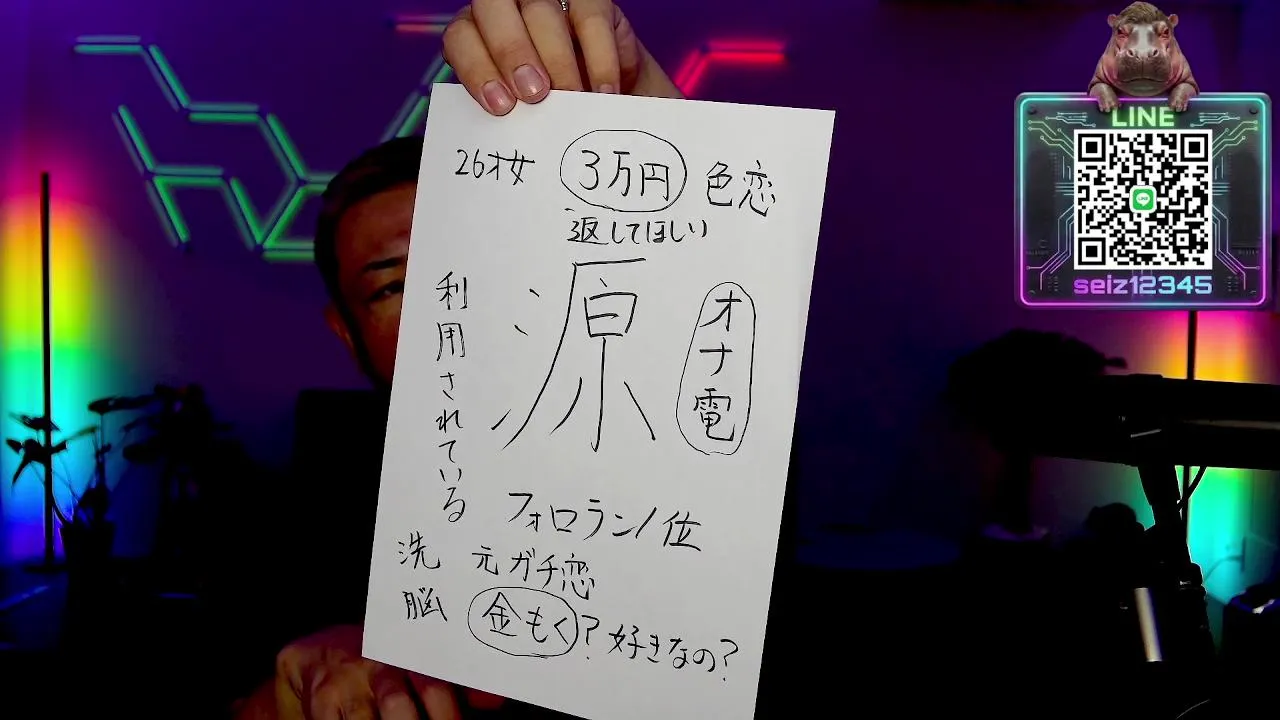 26才女 3万円 色恋
返してほしい
源
オナ電
利用されている
フォロラン1位
洗脳
元ガチ恋
金もく?好きなの?
LINE
seiz12345